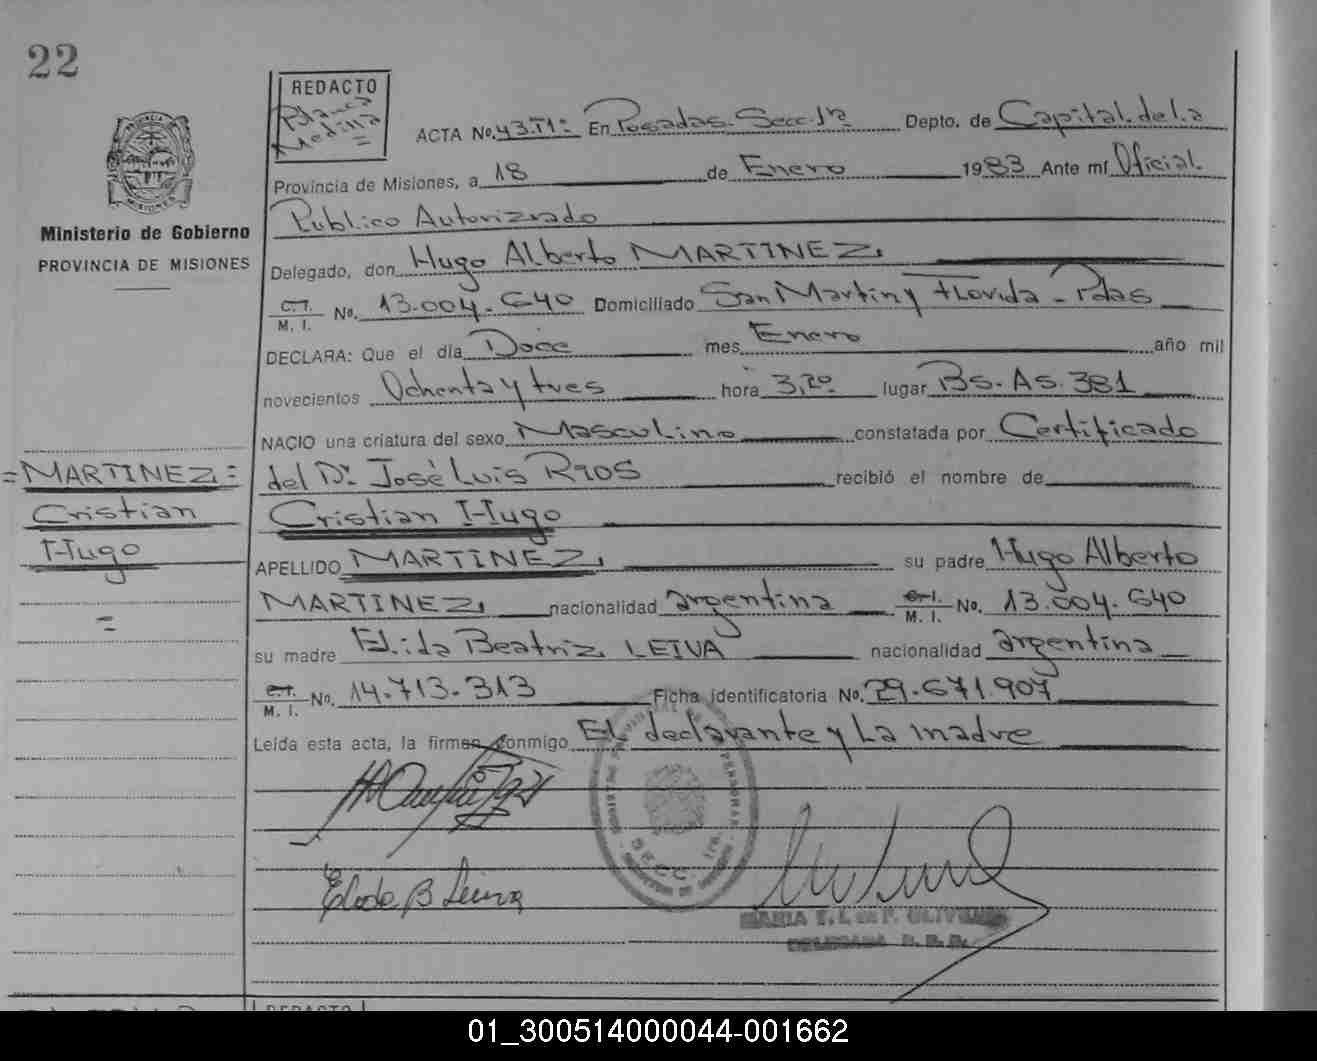 22
REDACTO
Blanca
Medina
ACTA No. 43.T1: En Posadas. Secc. 1ra Depto. de Capital. de la
Provincia de Misiones, a 18 de Enero 1983 Ante mí Oficial.
Publico Autorizado
Ministerio de Gobierno
PROVINCIA DE MISIONES
Delegado, don Hugo Alberto MARTINEZ.
C.I.
M. I. No. 13.004.640 Domiciliado San Martin y Florida - Pdas
DECLARA: Que el día Doce mes Enero año mil
novecientos Ochenta y tres hora 3,20 lugar Bs. As. 381
NACIO una criatura del sexo Masculino constatada por Certificado
= MARTINEZ: =
Cristian
Hugo
=
del Dr. José Luis RIOS recibió el nombre de
Cristian Hugo
APELLIDO MARTINEZ. su padre Hugo Alberto
MARTINEZ. nacionalidad argentina C.I.
M. I. No. 13.004.640
su madre Elida Beatriz LEIVA nacionalidad argentina
C.I.
M. I. No. 14.713.313 Ficha identificatoria No. 29.671.907
Leída esta acta, la firman conmigo El declarante y La madre
SECC. 1ra.
Elida B Leiva
MARIA E. L. de P. OLIVERA
DELEGADA
REDACTO
01_300514000044-001662